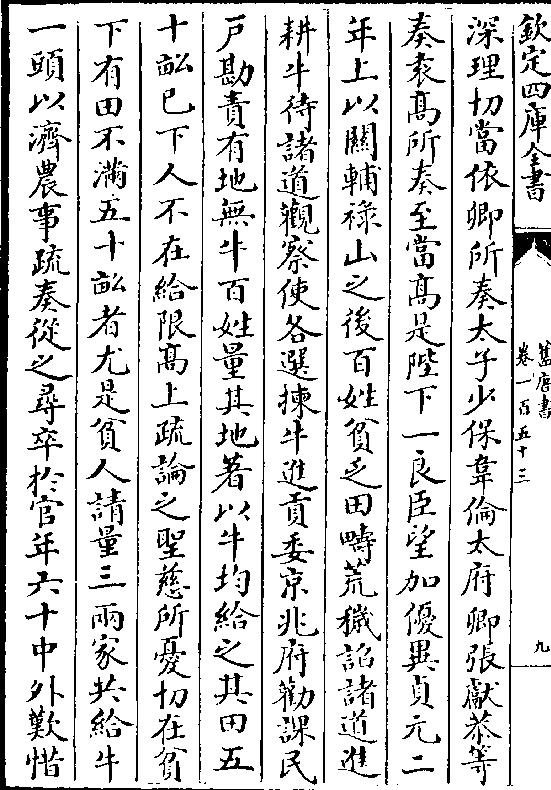 欽定四庫全書
舊唐書
卷一百五十三
九
深理切當依卿所奏太子少保韋倫太府卿張獻恭等
奏袁髙所奏至當髙是陛下一良臣望加優異貞元二
年上以關輔祿山之後百姓貧乏田疇荒穢詔諸道進
耕牛待諸道觀察使各選揀牛進貢委京兆府勸課民
戸勘責有地無牛百姓量其地著以牛均給之其田五
十畝已下人不在給限髙上疏論之聖慈所憂切在貧
下有田不滿五十畝者尤是貧人請量三兩家共給牛
一頭以濟農事疏奏從之尋卒於官年六十中外歎惜